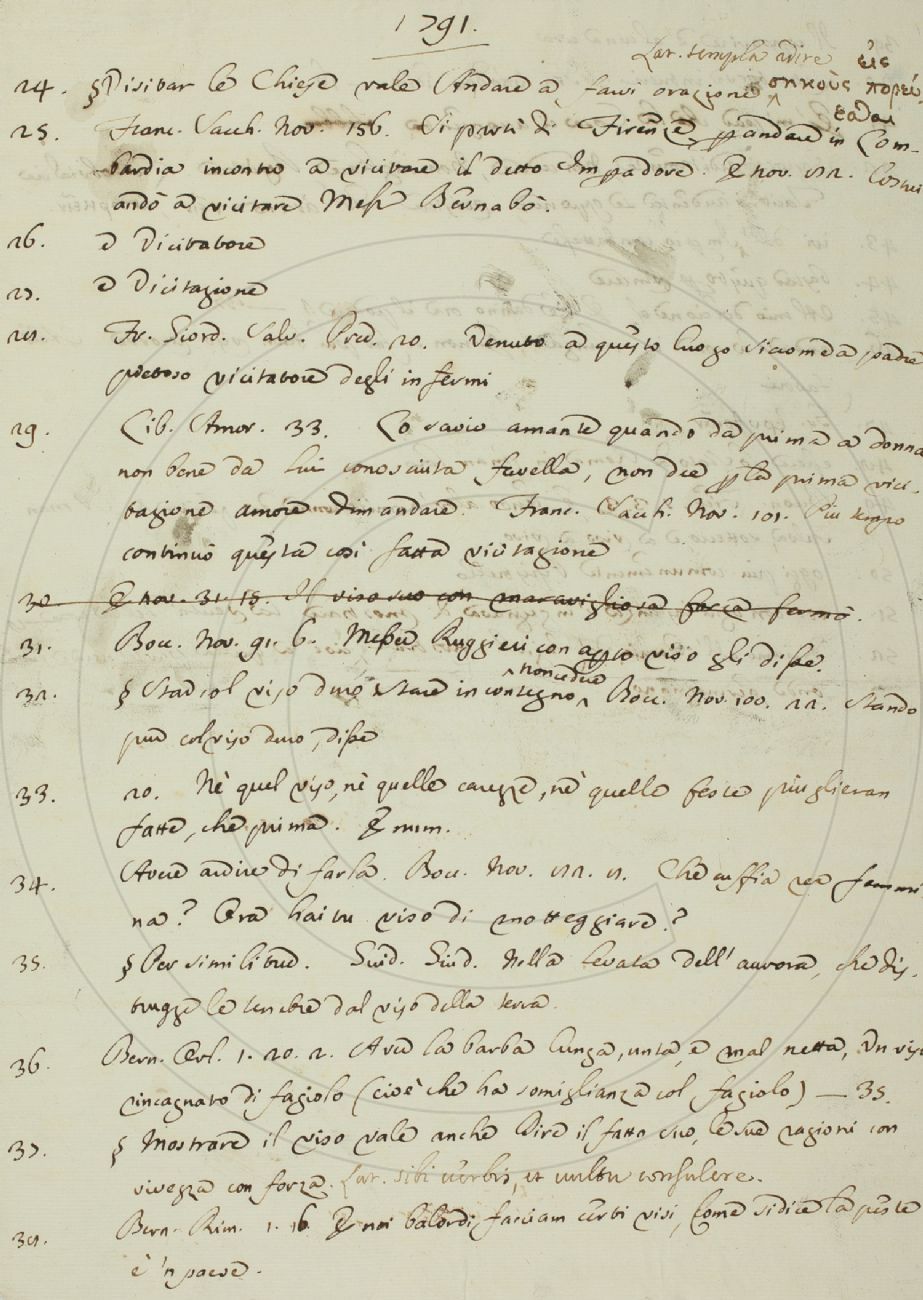 1791.
Lat. templa adire εἰς
24. § Visitar le Chiese vale Andare a farvi orazione ^ σηκοὺς πορεύ
εσθαι
25. Franc. Sacch. Nov. 156. Si partì di Firenze p andare in Lom-
bardia incontro a vicitare il detto Impadore. E nov. 152. Costui
andò a vicitare Messr Bernabò.
26. e Vicitatore
27. e Vicitazione
28. Fr. Giord. Salv. Pred. 20. Venuto a questo luogo siccome a padre
pietoso vicitatore degli infermi
29. Lib. Amor. 33. Lo savio amante quando da prima a donna
non bene da lui conosciuta favella, non dee p la prima vici-
tazione amore dimandare. Franc. Sacch. Nov. 101. Più tempo
continuò questa così fatta vicitazione
30. E nov. 31. 15. Il viso suo con maravigliosa forza fermò.
31. Bocc. Nov. 91. 6. Messer Ruggieri con aperto viso gli disse.
32. § Star col viso duro Stare in contegno ^ non cedere Bocc. Nov. 100. 22. Stando
pur col viso duro, disse
33. 20. Nè quel viso, nè quelle carezze, nè quelle feste più gli eran
fatte, che prima. E num.
34. Avere ardire di farla. Bocc. Nov. 52. 5. Che rea femmi
na? Ora hai tu viso di motteggiare?
35. § Per similitud. Guid. Giud. Nella levata dell' aurora, che dis-
trugge le tenebre dal viso della terra.
36. Bern. Orl. 1. 20. 2. Avea la barba lunga, unta, e mal netta, Un viso
rincagnato di fagiolo (cioè che ha somiglianza col fagiolo) — 35.
37. § Mostrare il viso vale anche Dire il fatto suo, le sue ragioni con
vivezza con forza. Lat. sibi verbis, et vultu consulere.
38. Bern. Rim. 1. 16. E noi balordi facciam certi visi, Come si dice la peste
è 'n paese.